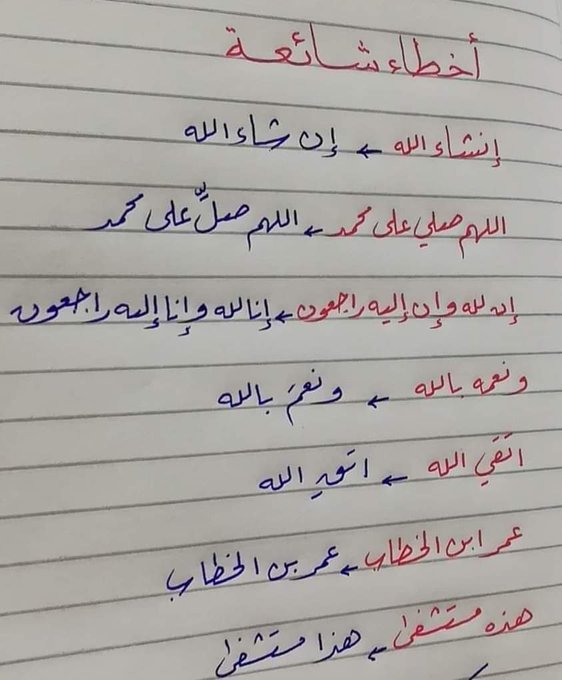 أخطاء شائعة
إنشاء الله ← إن شاء الله
اللهم صلي على محمد ← اللهم صلِّ على محمد
إن لله وإن إليه راجعون ← إنا لله وإنا إليه راجعون
ونعمه بالله ← ونعمَ بالله
اتقي الله ← اتقِ الله
عمر ابن الخطاب ← عمر بن الخطاب
هذه مستشفى ← هذا مستشفى